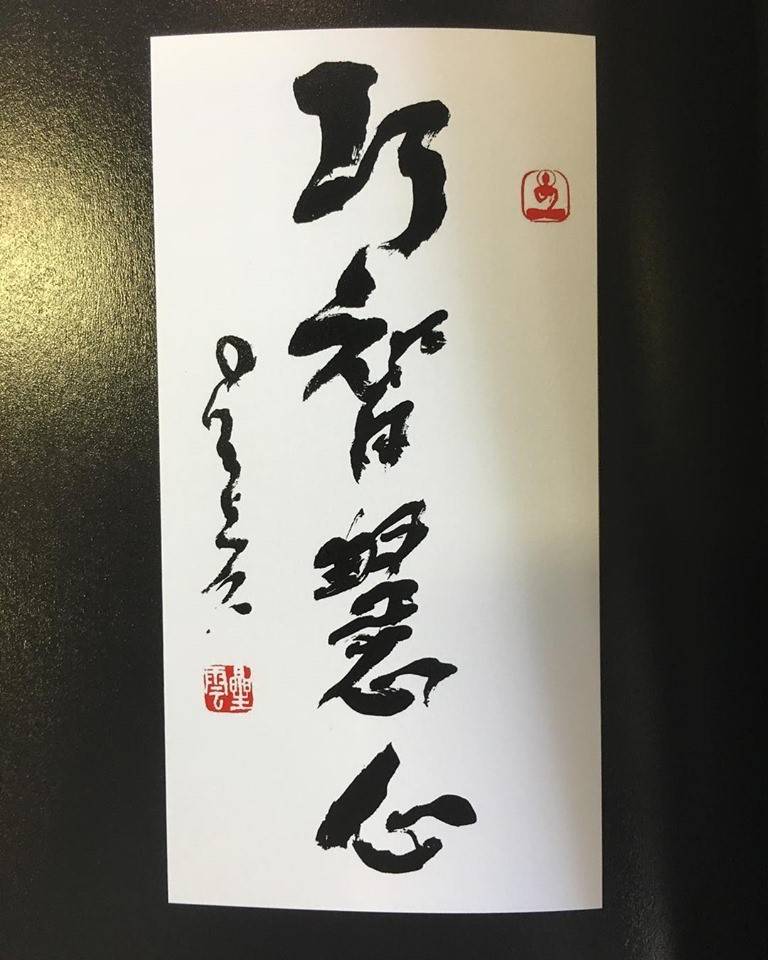 巧智慧心
星云
星雲